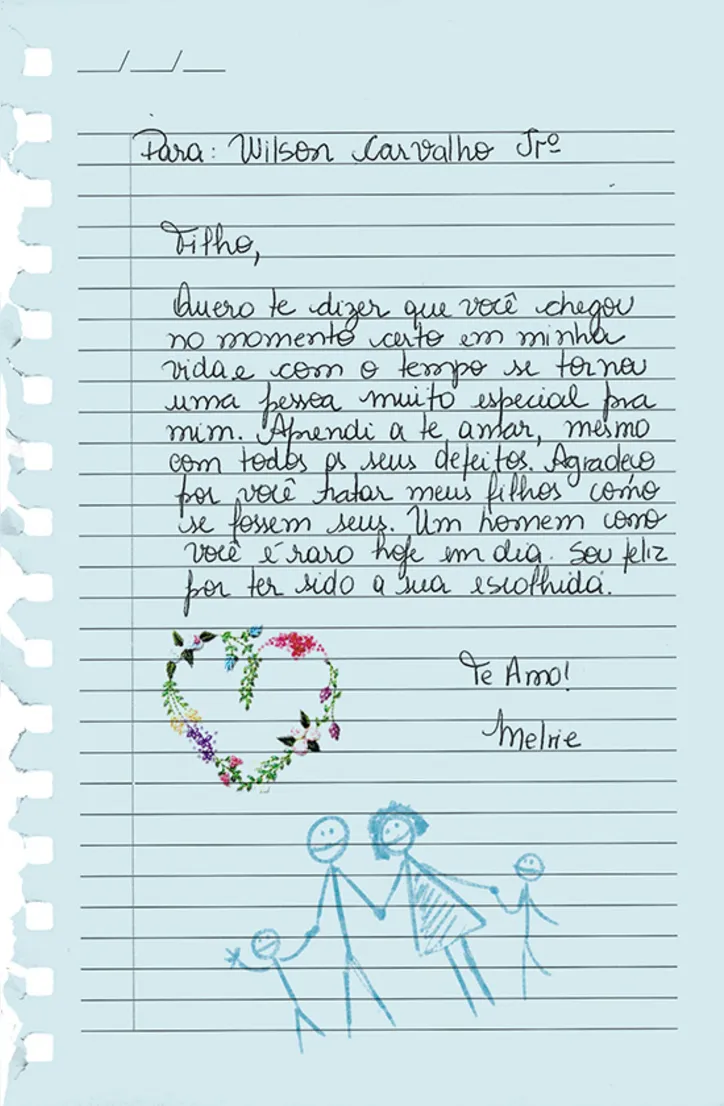 __/__/__
Para: Wilson Carvalho Jrº
Filho,
Quero te dizer que você chegou
no momento certo em minha
vida e com o tempo se tornou
uma pessoa muito especial pra
mim. Aprendi a te amar, mesmo
com todos os seus defeitos. Agradeço
por você tratar meus filhos como
se fossem seus. Um homem como
você é raro hoje em dia. Sou feliz
por ter sido a sua escolhida.
Te Amo!